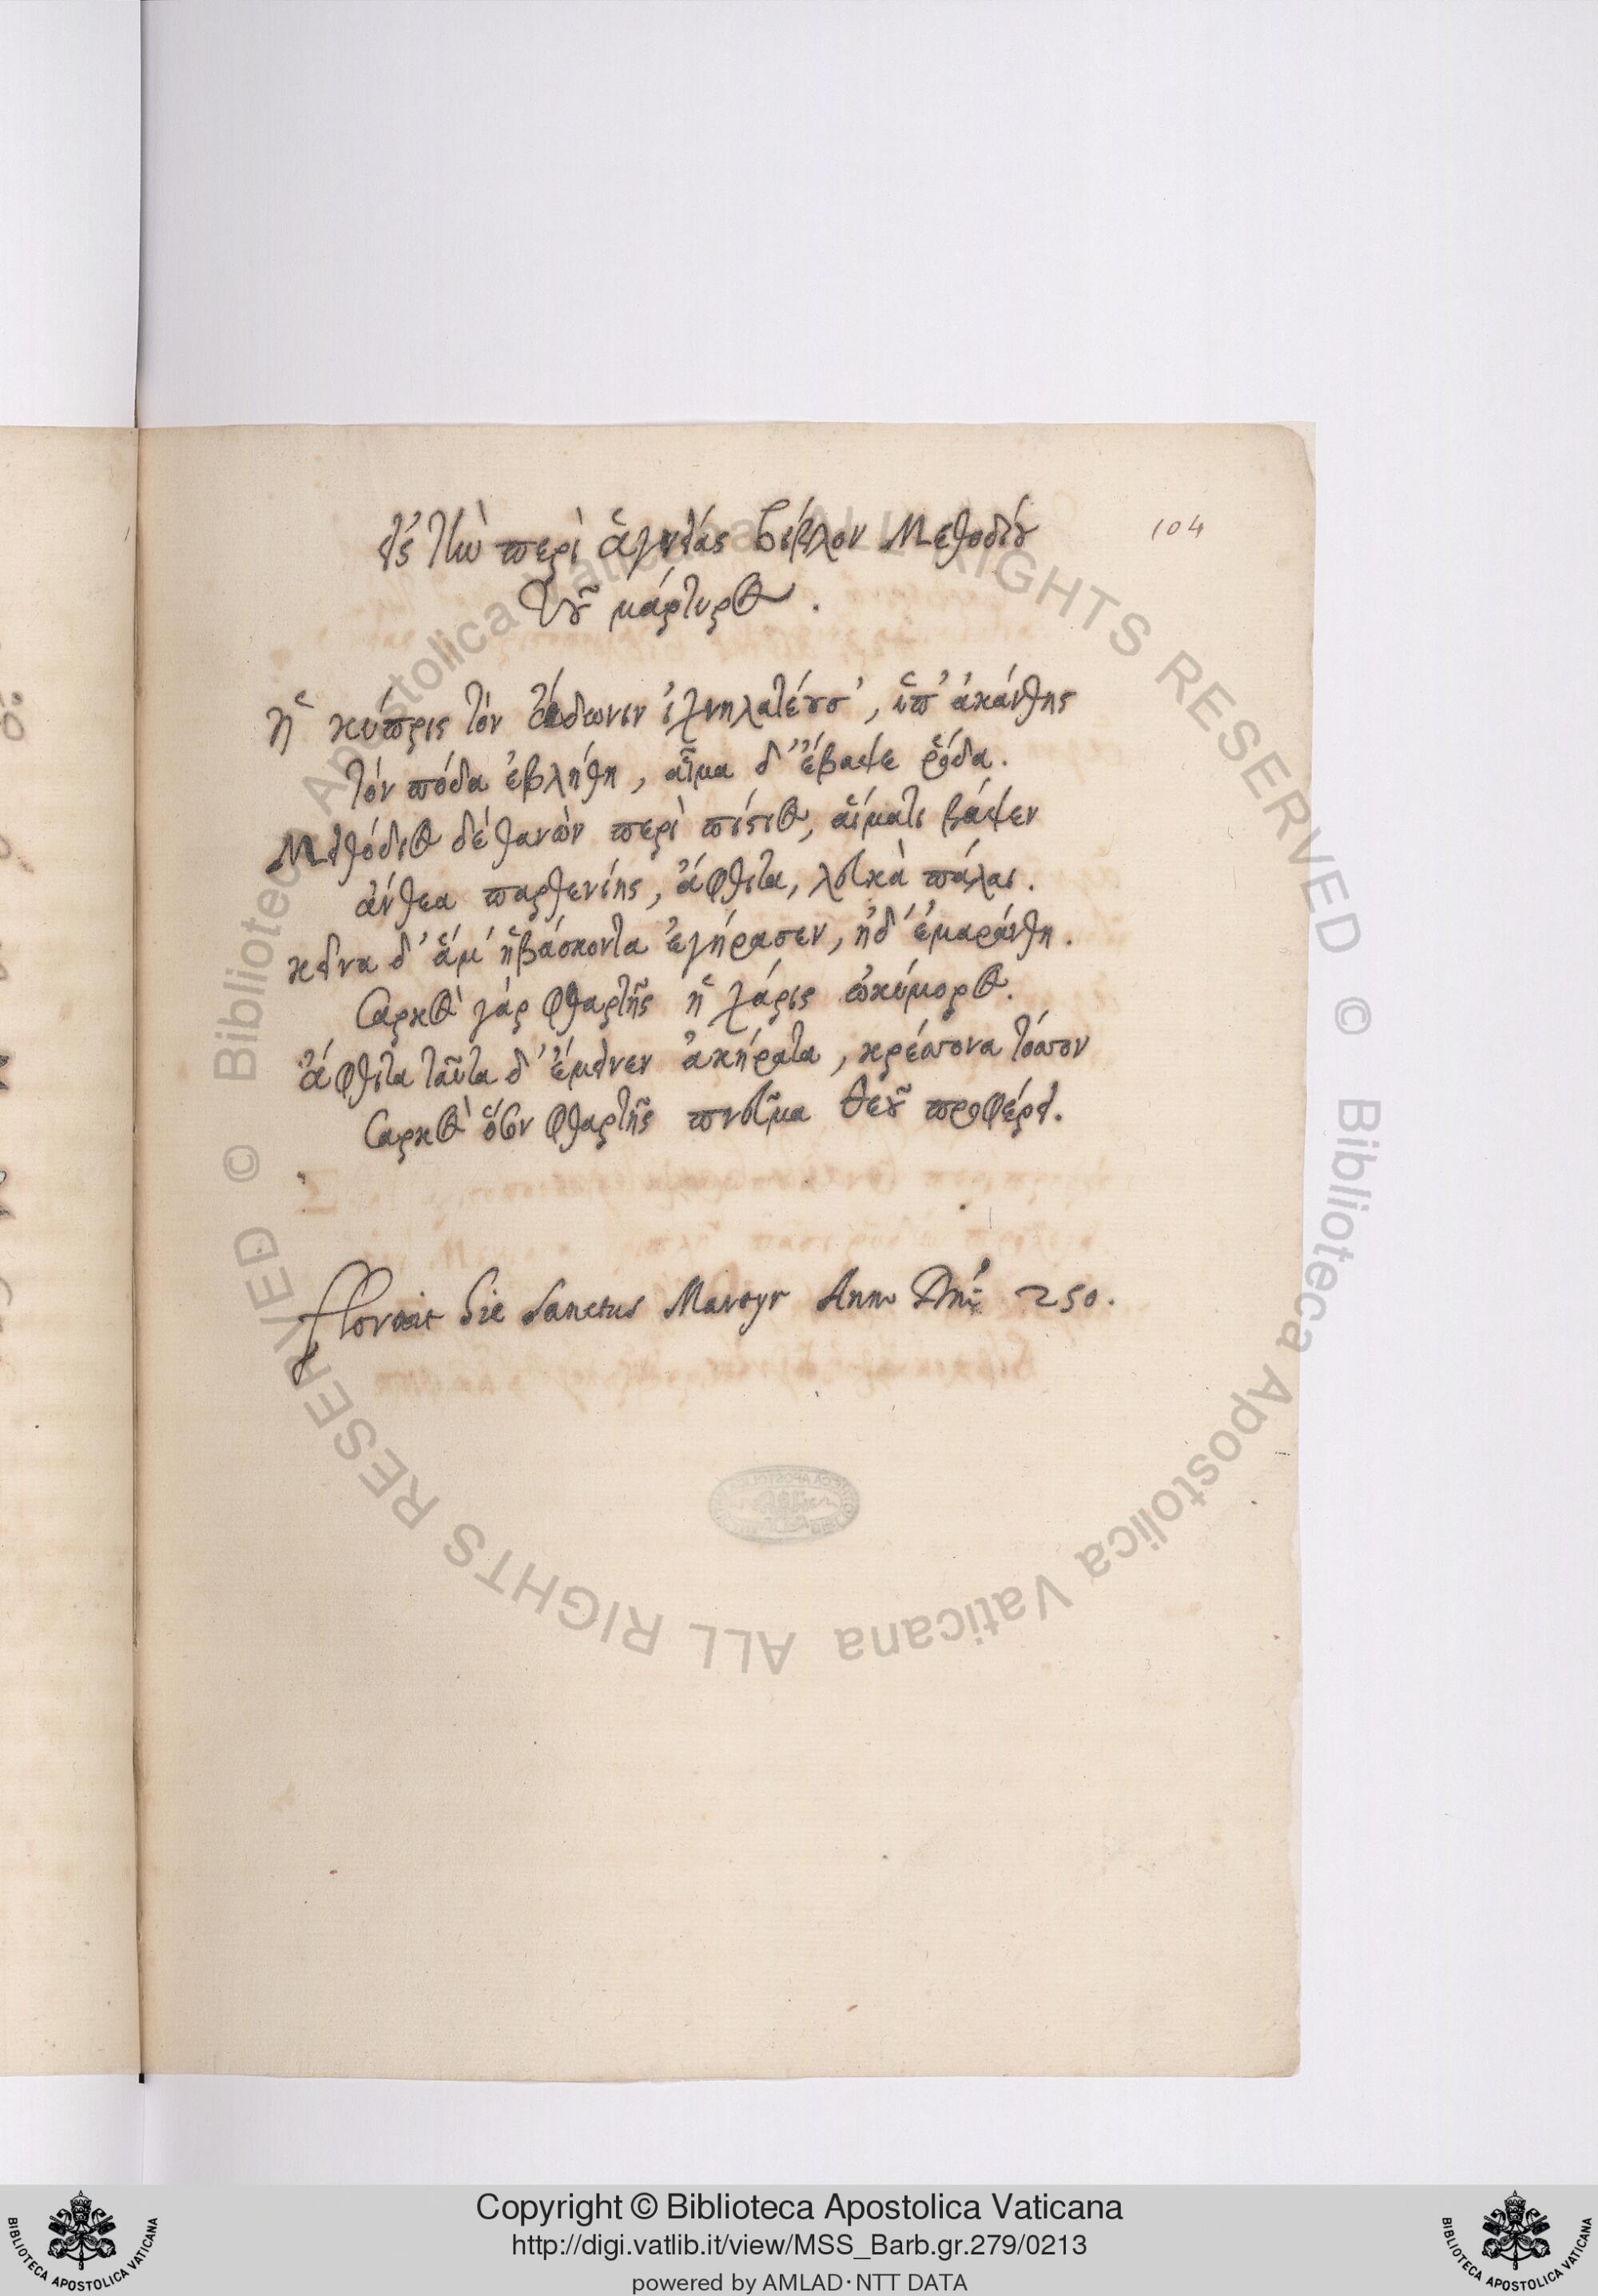 104
εἰς τὴν περὶ ἁγνείας βίβλον Μεθοδίου
τοῦ μάρτυρος.
ἡ κύπρις τὸν ἄδωνιν ἰχνηλατέουσ', ὑπ' ἀκάνθης
τὸν πόδα ἐβλήθη, αἷμα δ' ἔβαψε ῥόδα.
Μεθόδιος δὲ θανὼν περὶ πίστιος, αἵματι βάψεν
ἄνθεα παρθενίης, ἄφθιτα, λευκὰ πάλαι.
κεῖνα δ' ἅμ' ἡβάσκοντα ἐγήρασεν, ἠδ' ἐμαράνθη.
σαρκὸς γὰρ φθαρτῆς ἡ χάρις ὠκύμορος.
ἄφθιτα ταῦτα δ' ἔμεινεν ἀκήρατα, κρέσσονα τόσσον
σαρκὸς ὅσον φθαρτῆς πνεῦμα θεοῦ προφέρει.
floruit hic Sanctus Martyr Anno Dni 250.
Copyright © Biblioteca Apostolica Vaticana
http://digi.vatlib.it/view/MSS_Barb.gr.279/0213
powered by AMLAD·NTT DATA
BIBLIOTECA APOSTOLICA VATICANA
BIBLIOTECA APOSTOLICA VATICANA
© Biblioteca Apostolica Vaticana ALL RIGHTS RESERVED
© Biblioteca Apostolica Vaticana ALL RIGHTS RESERVED